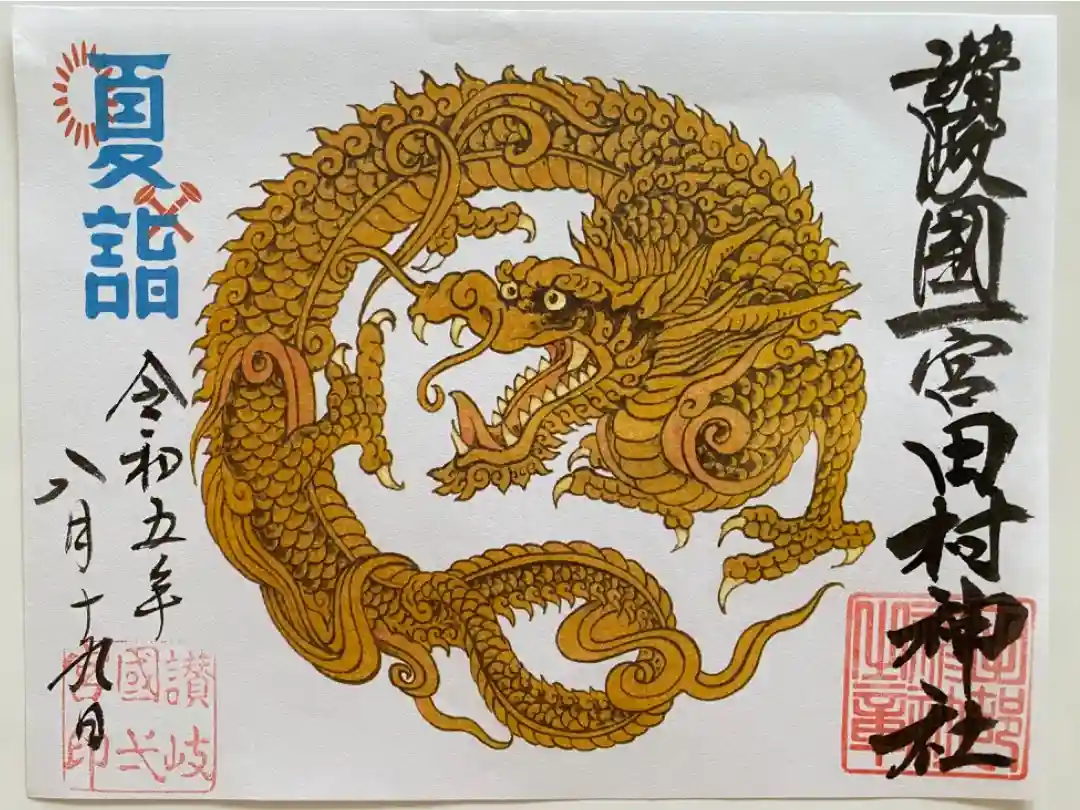 讃岐國一宮田村神社
夏詣
令和五年
八月十九日
讃岐
國弌
宮印